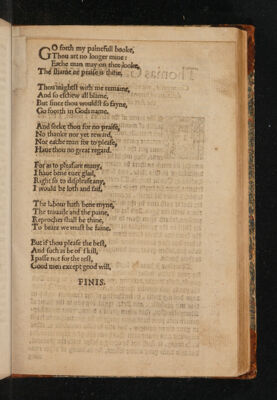 GO forth my painefull booke,
Thou art no longer mine:
Eache man may on thee looke,
The shame or praise is thine.
Thou mightest with me remaine,
And so eschew all blame,
But since thou wouldst so fayne,
Go foorth in Gods name.
And seeke thou for no praise,
No thanke nor yet reward,
Nor eache man for to please,
Haue thou no great regard.
For as to pleasure many,
I haue bene euer glad,
Right so to displease any,
I would be loth and sad.
The labour hath bene myne,
The trauaile and the paine,
Reproches shall be thine,
To beare we must be faine.
But if thou please the best,
And such as be of skill,
I passe not for the rest,
Good men except good will,
FINIS.